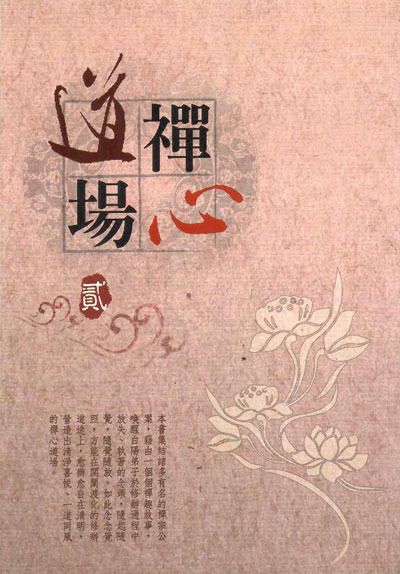 禪心
道場
貳
本書集結諸多有名的禪宗公
案，藉由一個個禪趣故事，
喚醒白陽弟子於修辦過程中
放失、執著的念頭，隨起隨
覺，隨覺隨放。如此念念覺
照，方能在開闡渡化的修辦
道途上，愈辦愈自在清明，
營造出清淨喜悅、一道同風
的禪心道場。